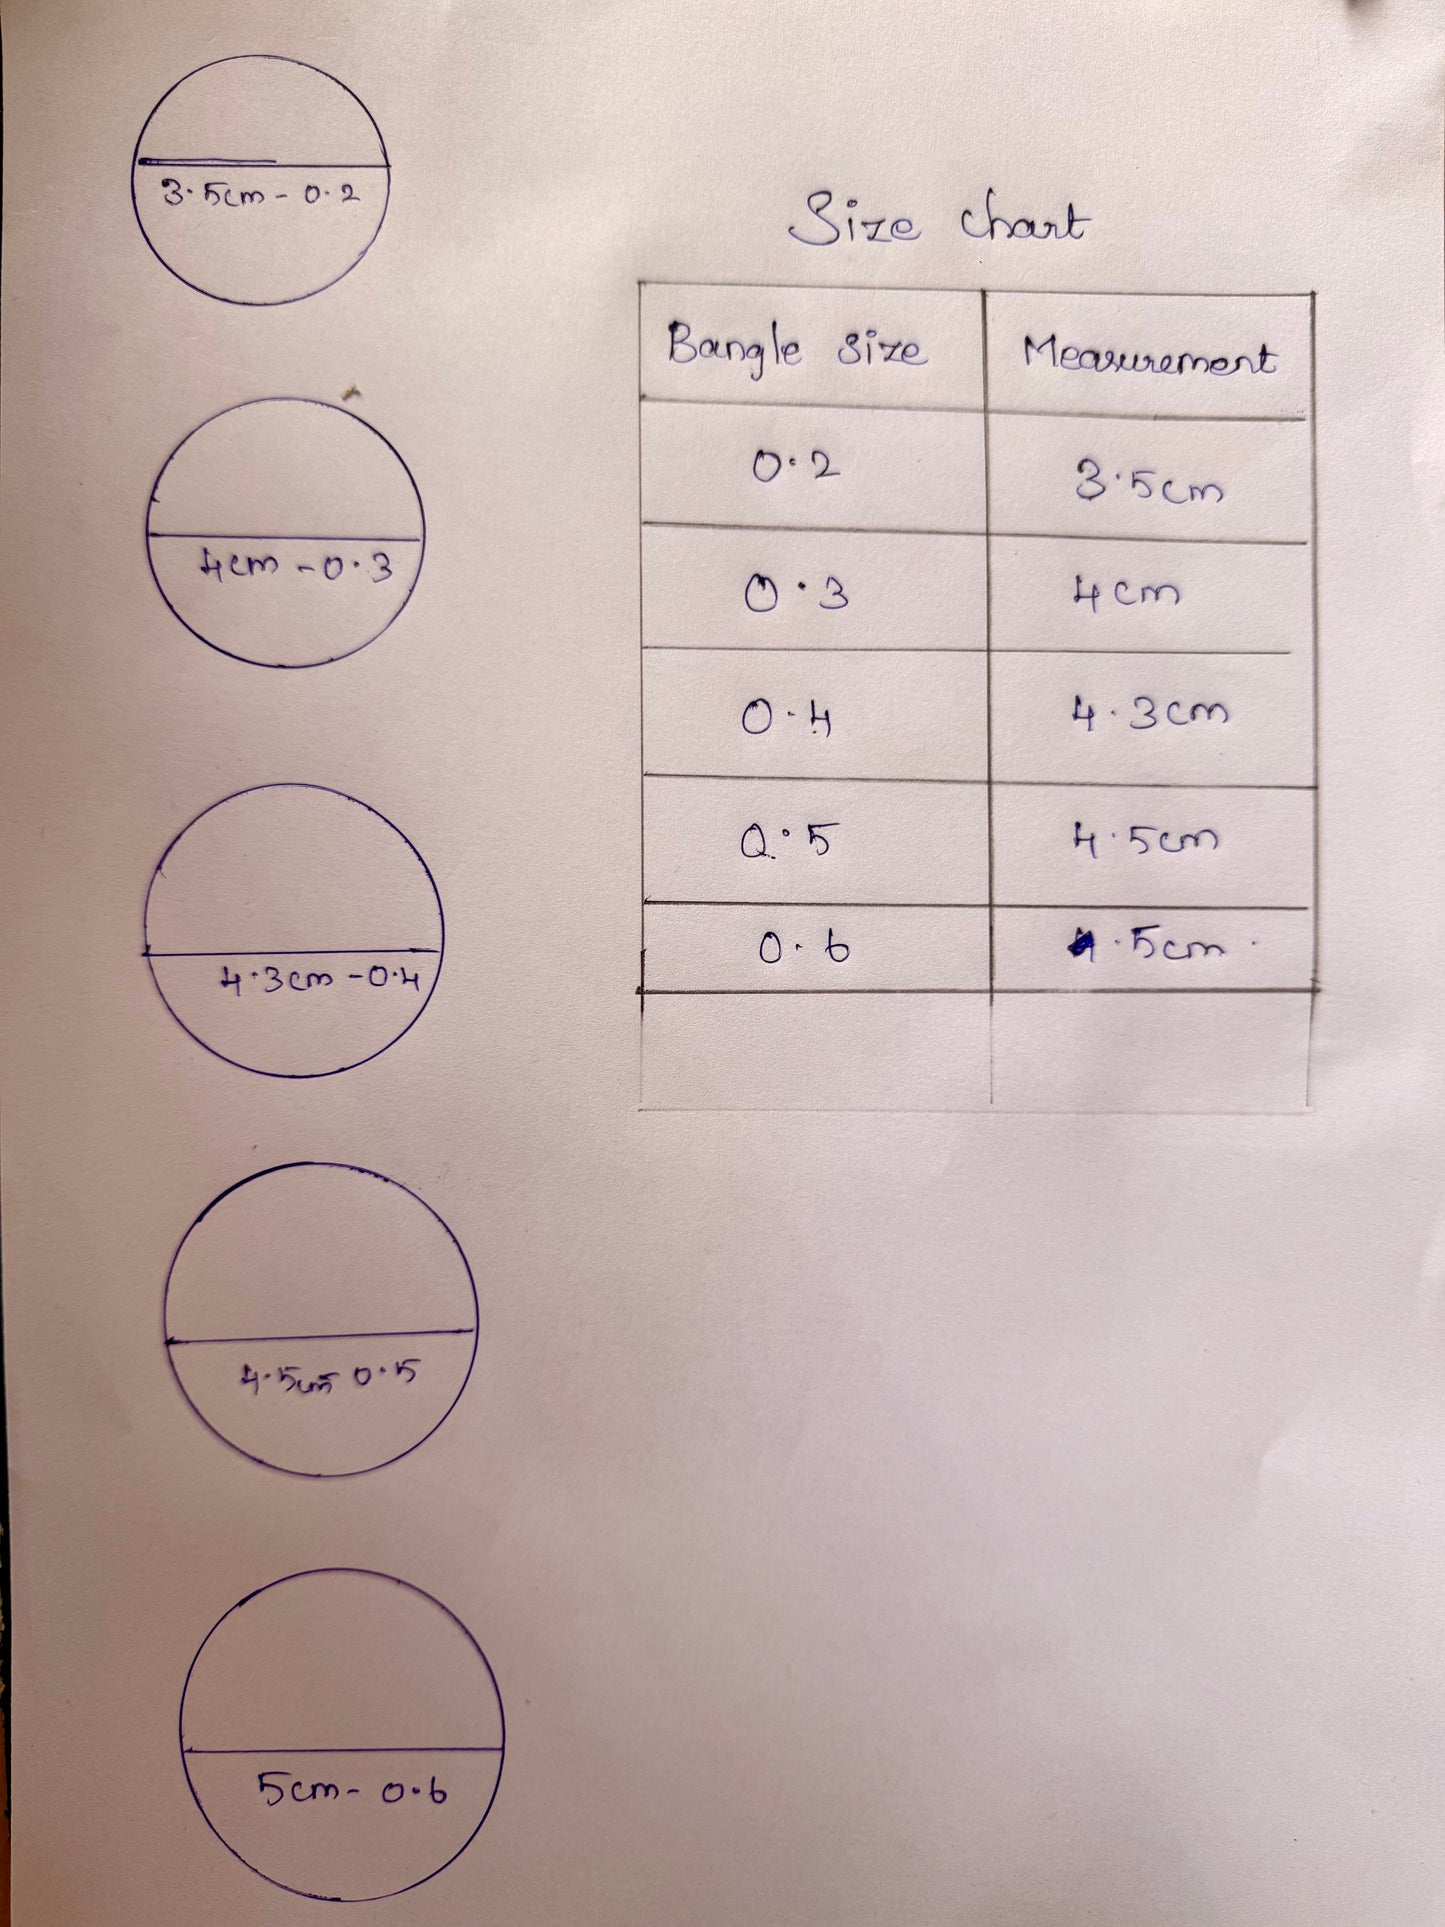 3.5cm - 0.2
4cm - 0.3
4.3cm - 0.4
4.5cm 0.5
5cm - 0.6
Size chart
Bangle size Measurement
0.2 3.5cm
0.3 4cm
0.4 4.3cm
0.5 4.5cm
0.6 .5cm